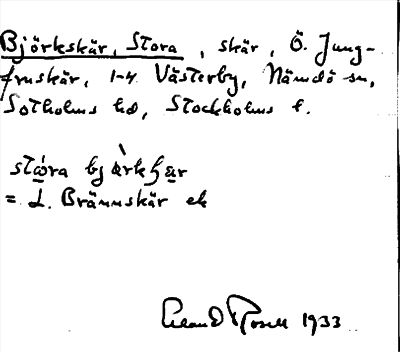 Björkskär, Stora, skär, Ö. Jung-
fruskär, 1-4 Västerby, Nämdö sn,
Sotholms hd, Stockholms l.
stɷ́ra bjàrkʂær
= L. Brännskär ek
Erland Rosell 1933